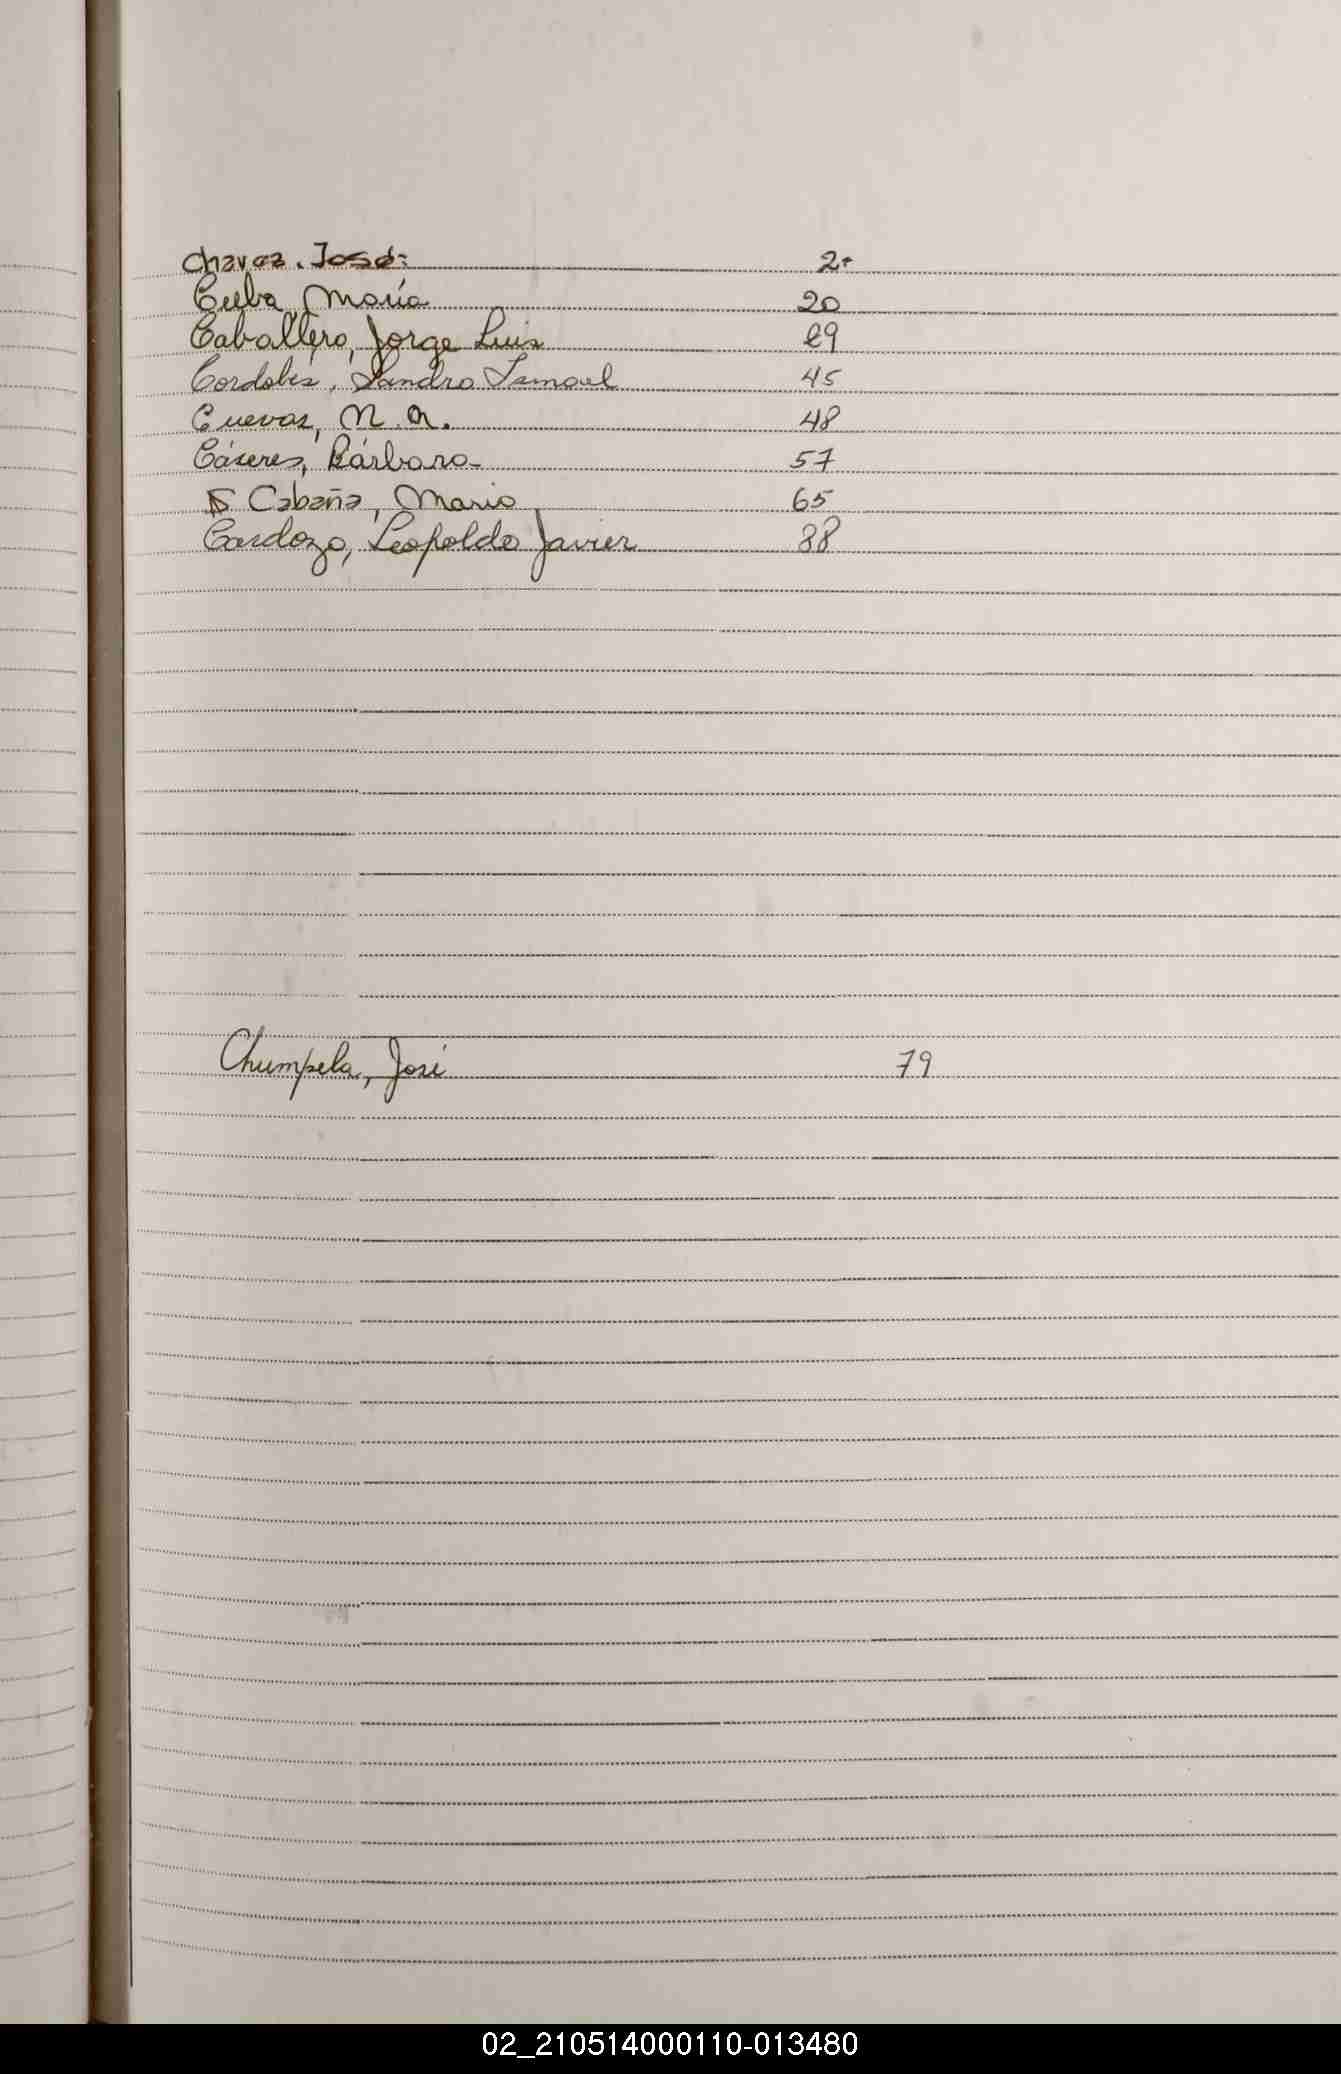 Chavez. José: 2.
Cuba María 20
Caballero, Jorge Luis 29
Cordobés, Sandro Ismael 45
Cuevas, N. A. 48
Cáseres, Bárbara- 57
Cabaña, Mario 65
Cardozo, Leopoldo Javier 88
Chumpela, José 79
02_210514000110-013480